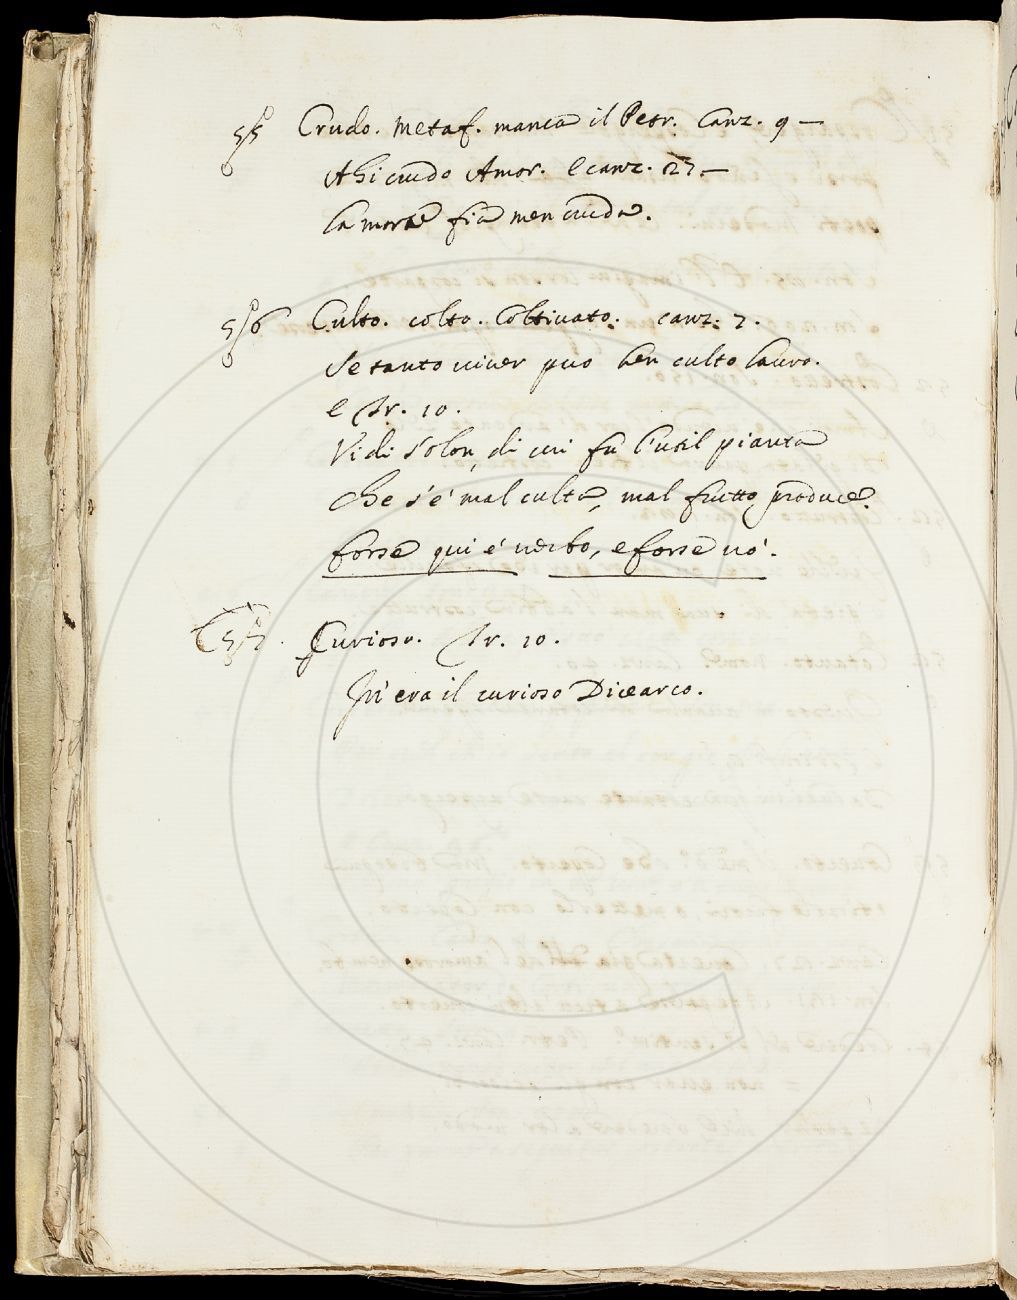 Crudo. metaf. manca il Petr. Canz. 9 —
Ahi crudo Amor. e canz. 27 —
La morte fia men cruda.
Culto. colto. Coltivato. canz. 7.
Se tanto viver puo ben culto lauro.
e Tr. 10.
Vidi Solon, di cui fu l'util pianta
Che s'é mal culta, mal frutto produce.
forse qui é verbo, e forse nó.
Curioso. Tr. 10.
Ivi era il curioso Dicearco.